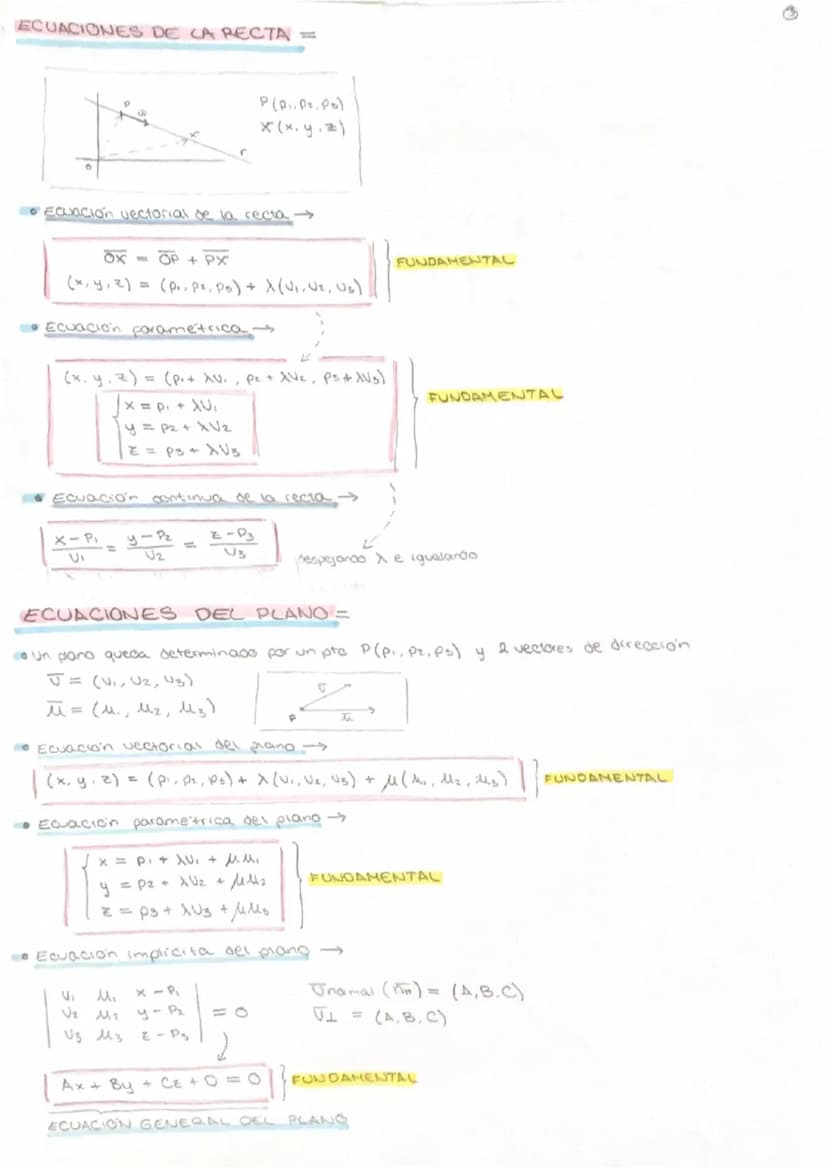 ③
ECUACIONES DE LA RECTA =
P
v̅
x
r
0
P(p₁, p₂, p₃)
X(x, y, z)
• Ecuación vectorial de la recta →
OX = OP + PX
(x, y, z) = (p₁, p₂, p₃) + λ(v₁, v₂, v₃)
FUNDAMENTAL
• Ecuación paramétrica →
(x, y, z) = (p₁ + λv₁, p₂ + λv₂, p₃ + λv₃)
x = p₁ + λv₁
y = p₂ + λv₂
z = p₃ + λv₃
FUNDAMENTAL
• Ecuación continua de la recta →
(x - p₁)/v₁ = (y - p₂)/v₂ = (z - p₃)/v₃
Despejando λ e igualando
ECUACIONES DEL PLANO =
• Un pano queda determinado por un pto P(p₁, p₂, p₃) y 2 vectores de dirección
v̅ = (v₁, v₂, v₃)
u̅ = (u₁, u₂, u₃)
v̅
P
u̅
• Ecuación vectorial del plano →
(x, y, z) = (p₁, p₂, p₃) + λ(v₁, v₂, v₃) + μ(u₁, u₂, u₃)
FUNDAMENTAL
• Ecuación paramétrica del plano →
x = p₁ + λv₁ + μu₁
y = p₂ + λv₂ + μu₂
z = p₃ + λv₃ + μu₃
FUNDAMENTAL
• Ecuación implícita del plano →
| v₁ u₁ x - p₁ |
| v₂ u₂ y - p₂ | = 0
| v₃ u₃ z - p₃ |
v̅normal (n̅π) = (A, B, C)
v̅⊥ = (A, B, C)
Ax + By + Cz + D = 0
FUNDAMENTAL
ECUACIÓN GENERAL DEL PLANO